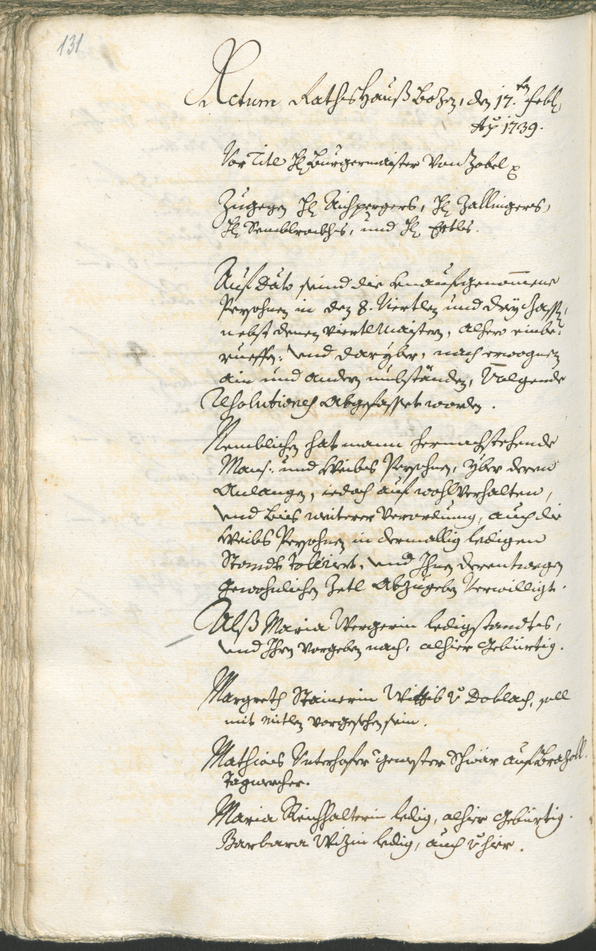 131
Actum Rathshauß Bozen, den 17.ten Febr.
Aō 1739.
Vor Titl H: Burgermaister von Zobel
Zugegen H: Aichpergers, H: Zallingers,
H: Semblrockhs, und H:
Auf dato seind die henaufgenommene
Persohnen in den 8. Viertlen und drey
nebst denen Viertlmaistern, alhero einbe-
rueffen: und darÿber, nach erwognen
ain und andern umbständen, Volgende
Resolutiones abgefasset worden.
Nemblichen hat mann hernachstehende
Mans- und Weibs Persohnen, yber deren
Anlangen, iedoch auf wohlverhalten,
und bies weiterer Verordnung, auch die
Weibs Persohnen in dermallig ledigem
Stande Toleriert, und Ihnen derentwegen
gewohnlichen Zetl abzugeben Verwilligt.
Alß Maria Wergerin ledig standtes,
und Ihren Vorgeben nach, alhier Gebürtig.
Margreth Stainerin Wittib v: Doblach, soll
mit mitlen vorgesehen sein.
Mathias Unterhofer gewester auf
Tagwercher.
Maria Reichhalterin ledig, alhier gebürtig.
Barbara Wizin ledig, auch v: hier.